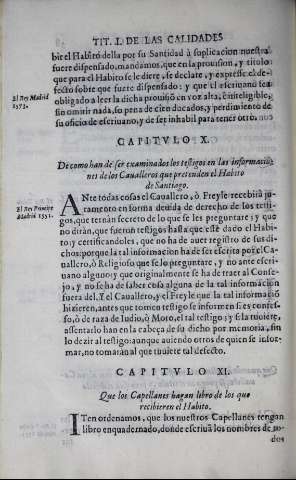 TIT. I. DE LAS CALIDADES
bir el Habito della por su Santidad à suplicacion nuestra
fuere dispensado, mandamos, que en la prouision, y titulo
que para el Habito se le diere, se declare, y expresse el de-
fecto sobre que fuere dispensado: y que el escriuano sea
El Rey Madrid
1573.
obligado a leer la dicha prouisió en voz alta, è inteligible,
sin omitir nada, so pena de cien ducados, y perdimiento de
su oficio de escriuano, y de ser inhabil para tener otro.
CAPITVLO X.
De como han de ser examinados los testigos en las informacio-
nes de los Caualleros que pretenden el Habito
de Santiago.
El Rey Principe
Madrid 1551.
ANte todas cosas el Cauallero, ò Freyle recebirà ju-
ramento en forma deuida de derecho de los testi-
gos, que ternàn secreto de lo que se les preguntare y que
no diràn, que fueron testigos hasta que estè dado el Habi-
to y certificandoles, que no ha de auer registro de sus di-
chos: porque la tal informacion ha de ser escrita por el Ca-
uallero, ò Religioso que se lo preguntare, y no ante escri-
uano alguno: y que originalmente se ha de traer al Conse-
jo, y no se ha de saber cosa alguna de la tal informacion
fuera del. Y el Cauallero, y el Freyle que la tal informació
hizieren, antes que tomen testigo se informen si es confes-
so, ò de raza de Iudio, ò Moro, el tal testigo: y si la tuuiere,
assentarlo han en la cabeça de su dicho por memoria, sin
lo dezir al testigo: aunque auiendo otros de quien se infor-
mar, no tomaràn al que tuuiere tal defecto.
CAPITVLO XI.
Que los Capellanes hagan libro de los que
recibieren el Habito.
ITen ordenamos, que los nuestros Capellanes tengan
libro enquadernado, donde escriuā los nombres de to-
dos